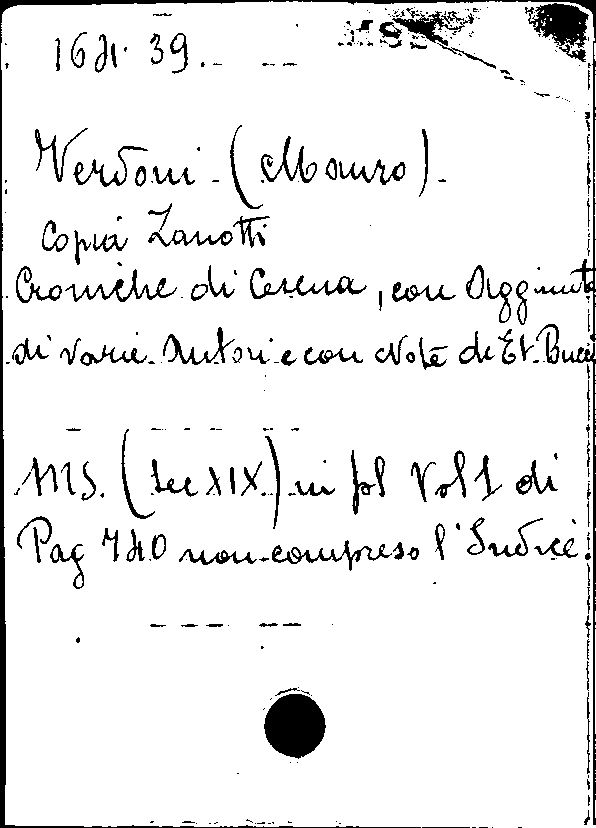 MSS
164. 39.
Verdoni (Mauro).
Copia Zanotti
Croniche di Cesena, con Aggiunta
di varie Autori e con Note di Et. Bucci
MS. (Sec XIX) in fol Vol 1 di
Pag 740 non compreso l'Indice.